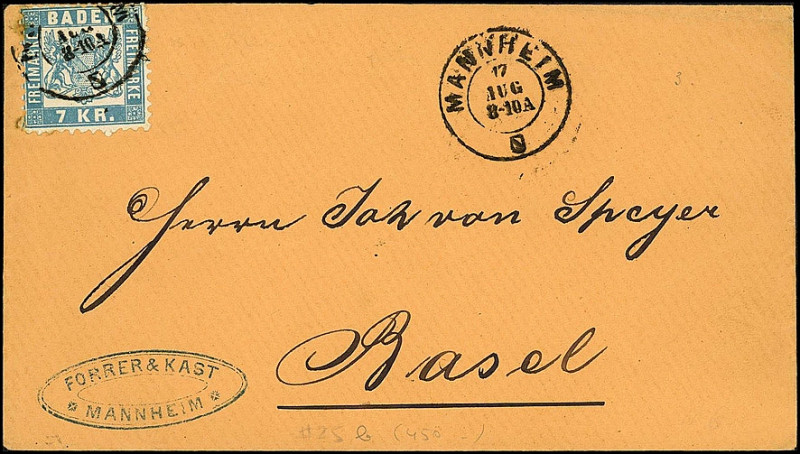 BADEN
FREIMARKE
FREIMARKE
7 KR.
AUG
8-10A
MANNHEIM
17
AUG
8-10A
3.
Herrn Joh von Speyer
Basel
FORRER & KAST
* MANNHEIM *
#25 b (450 -)